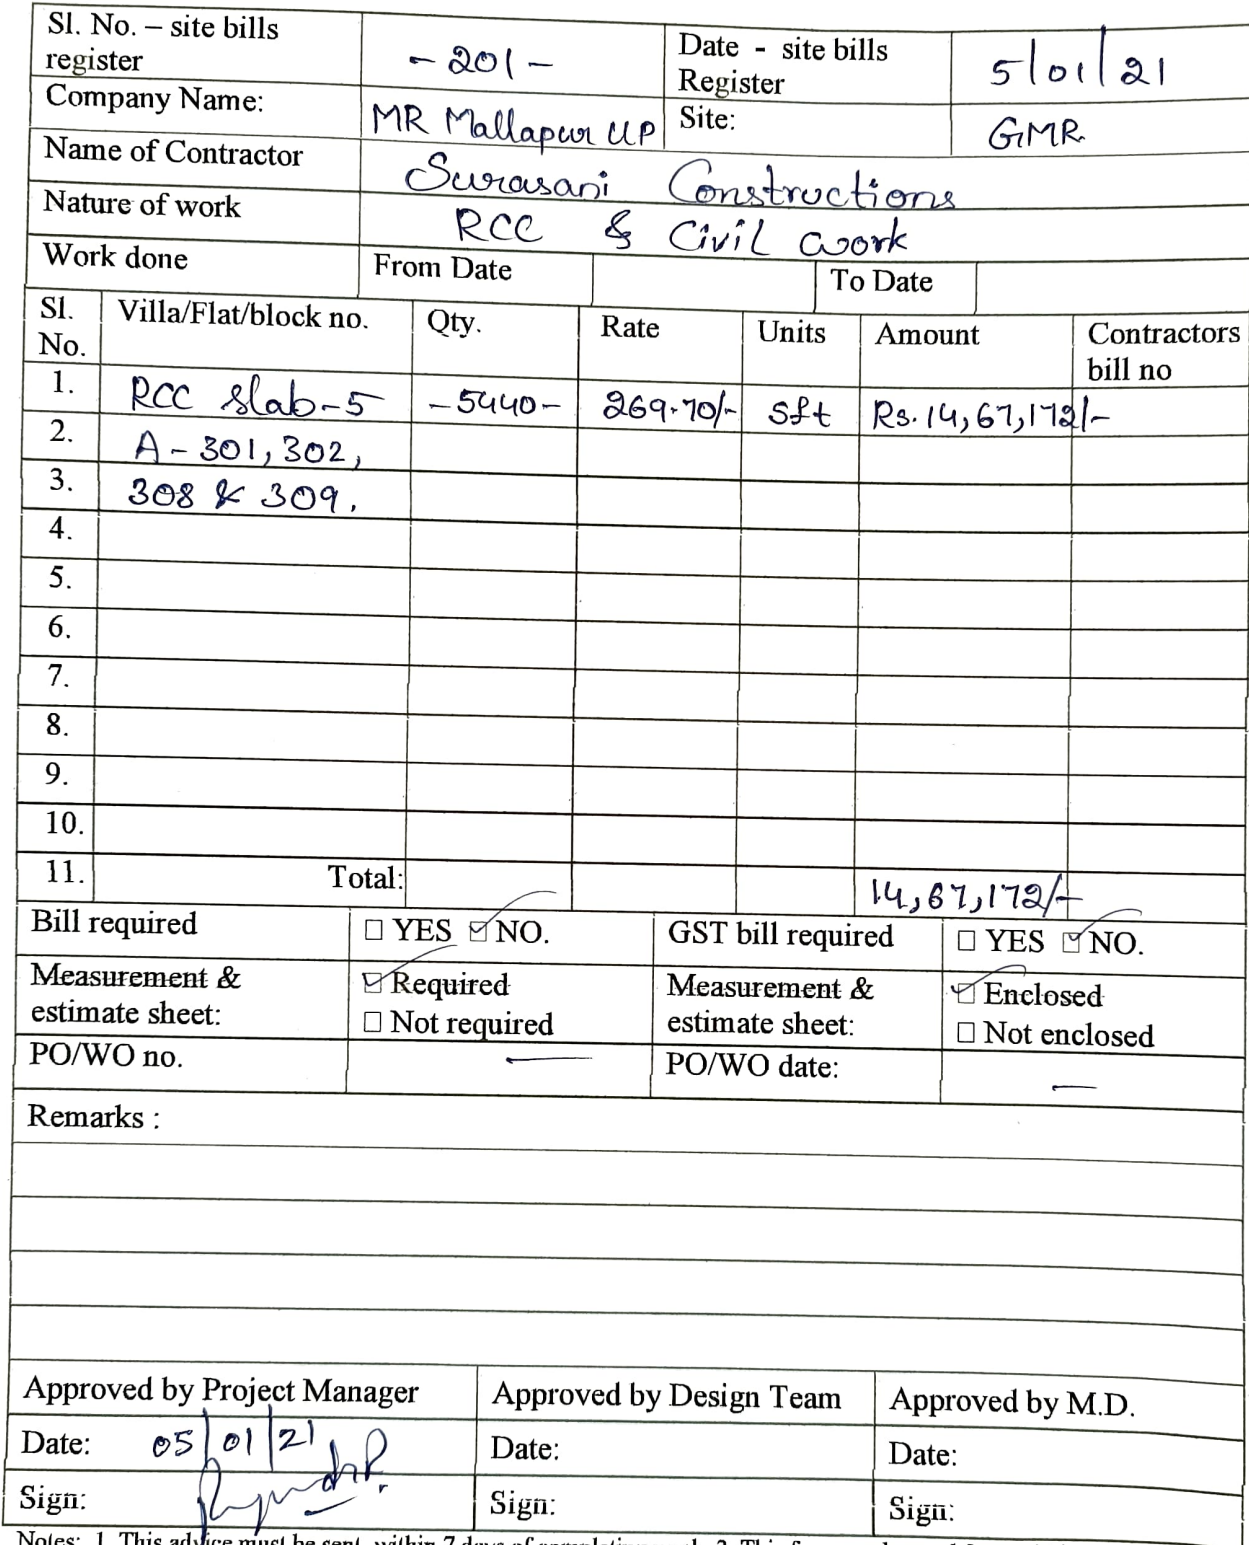 Sl. No. – site bills register -201- Date - site bills Register 5/01/21
Company Name: MR Mallapur UP Site: GMR
Name of Contractor Surasani Constructions
Nature of work RCC & Civil work
Work done From Date To Date
Sl. No. Villa/Flat/block no. Qty. Rate Units Amount Contractors bill no
1. RCC slab-5 -5440- 269.70/- sft Rs. 14,67,172/-
2. A-301, 302,
3. 308 & 309.
4.
5.
6.
7.
8.
9.
10.
11. Total: 14,67,172/-
Bill required ☐ YES ☑ NO. GST bill required ☐ YES ☑ NO.
Measurement & estimate sheet: ☑ Required ☐ Not required Measurement & estimate sheet: ☑ Enclosed ☐ Not enclosed
PO/WO no. — PO/WO date: —
Remarks :
Approved by Project Manager Approved by Design Team Approved by M.D.
Date: 05/01/21 Date: Date:
Sign: Sign: Sign:
Notes: 1. This advice must be sent within 7 days of